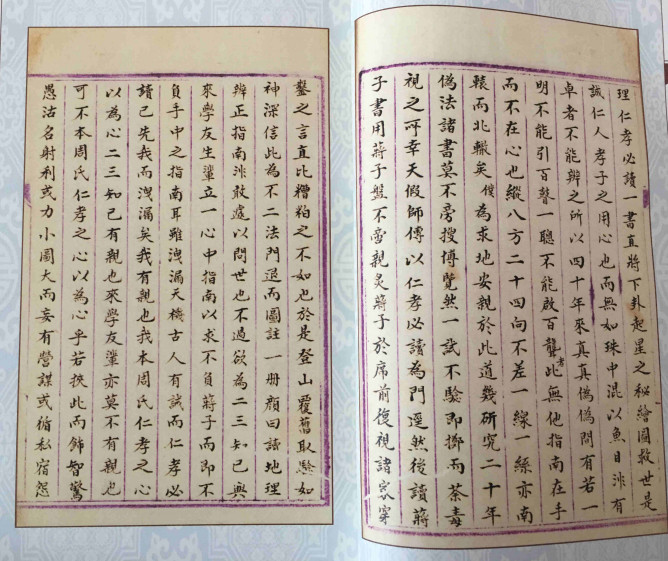 理仁孝必讀一書直將下卦起星之秘繪圖救世是
誠仁人孝子之用心也而無如珠中混以魚目非有
卓者不能辨之所以四十年來真真僞僞問有若一
明不能引百瞽一聰不能啟百聾考此無他指南在手
而不在心也縱八方二十四向不差一線一絲亦南
轅而北轍矣僕為求地安親於此道幾研究二十年
偽法諸書莫不旁搜博覽然一試不驗即擲而荼毒
視之所幸天假師傳以仁孝必讀為門逕然後讀蔣
子書用蔣子盤不啻親灵蔣子於席前復視諸家穿
鑿之言直比糟粕之不如也於是登山覆舊取驗如
神深信此為不二法門退而圖註一册顔曰讀地理
辨正指南非敢遽以問世也不過欲為二三知己與
來學友生輩立一心中指南以求不負蔣子而即不
負手中之指南耳雖洩漏天機古人有誡而仁孝必
讀已先我而洩漏矣我有親也我本周氏仁孝之心
以為心二三知己有親也來學友輩亦莫不有親也
可不本周氏仁孝之心以為心乎若挾此而飾智驚
愚沽名射利或力小圖大而妄有營謀或循私宿怨